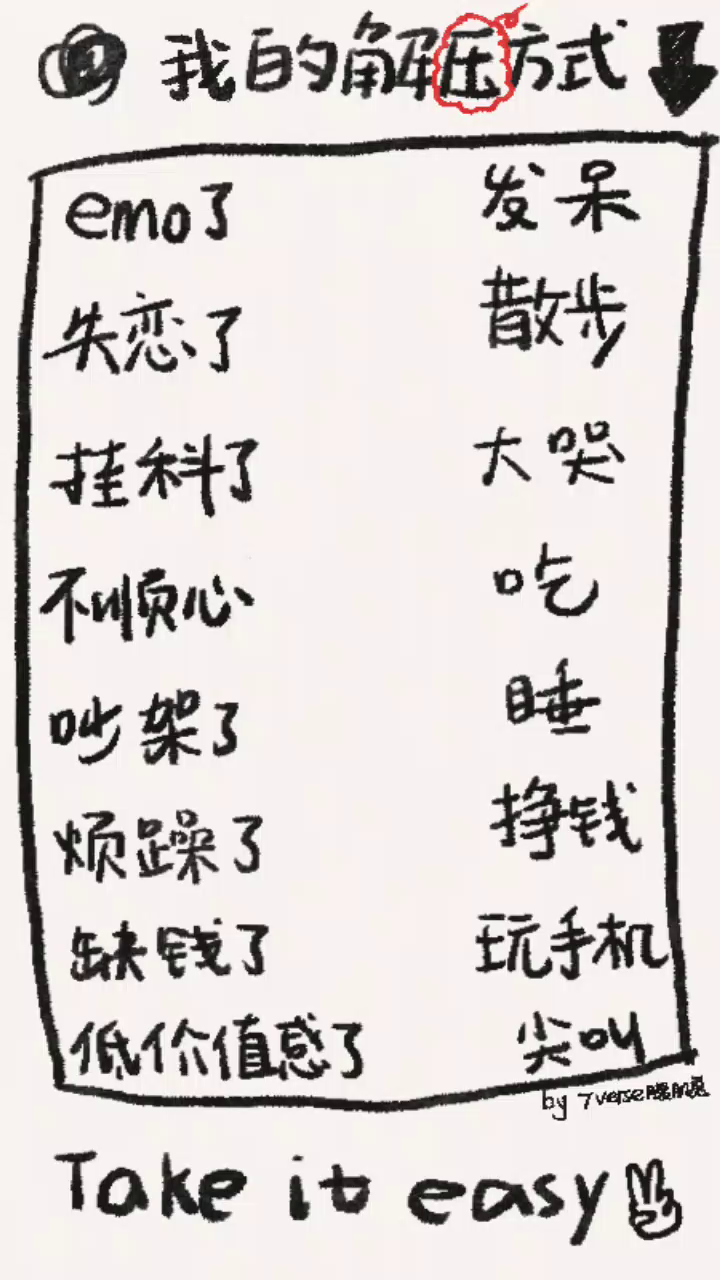 我的解压方式
emo了 发呆
失恋了 散步
挂科了 大哭
不顺心 吃
吵架了 睡
烦躁了 挣钱
缺钱了 玩手机
低价值感了 尖叫
by 7verse
Take it easy